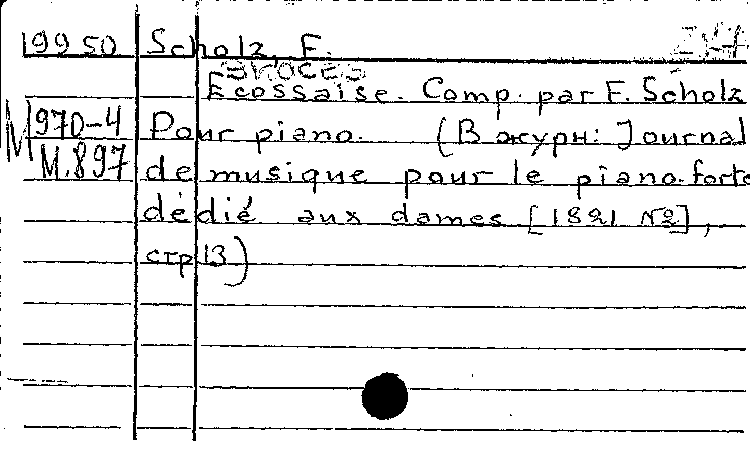 19950 Scholz, F.
Ecossaise. Comp. par F. Scholz
M 970-4 Pour piano. (В журн: Journal
M.897 de musique pour le piano-forte
dédié aux dames [1821 №2],
стр 13)